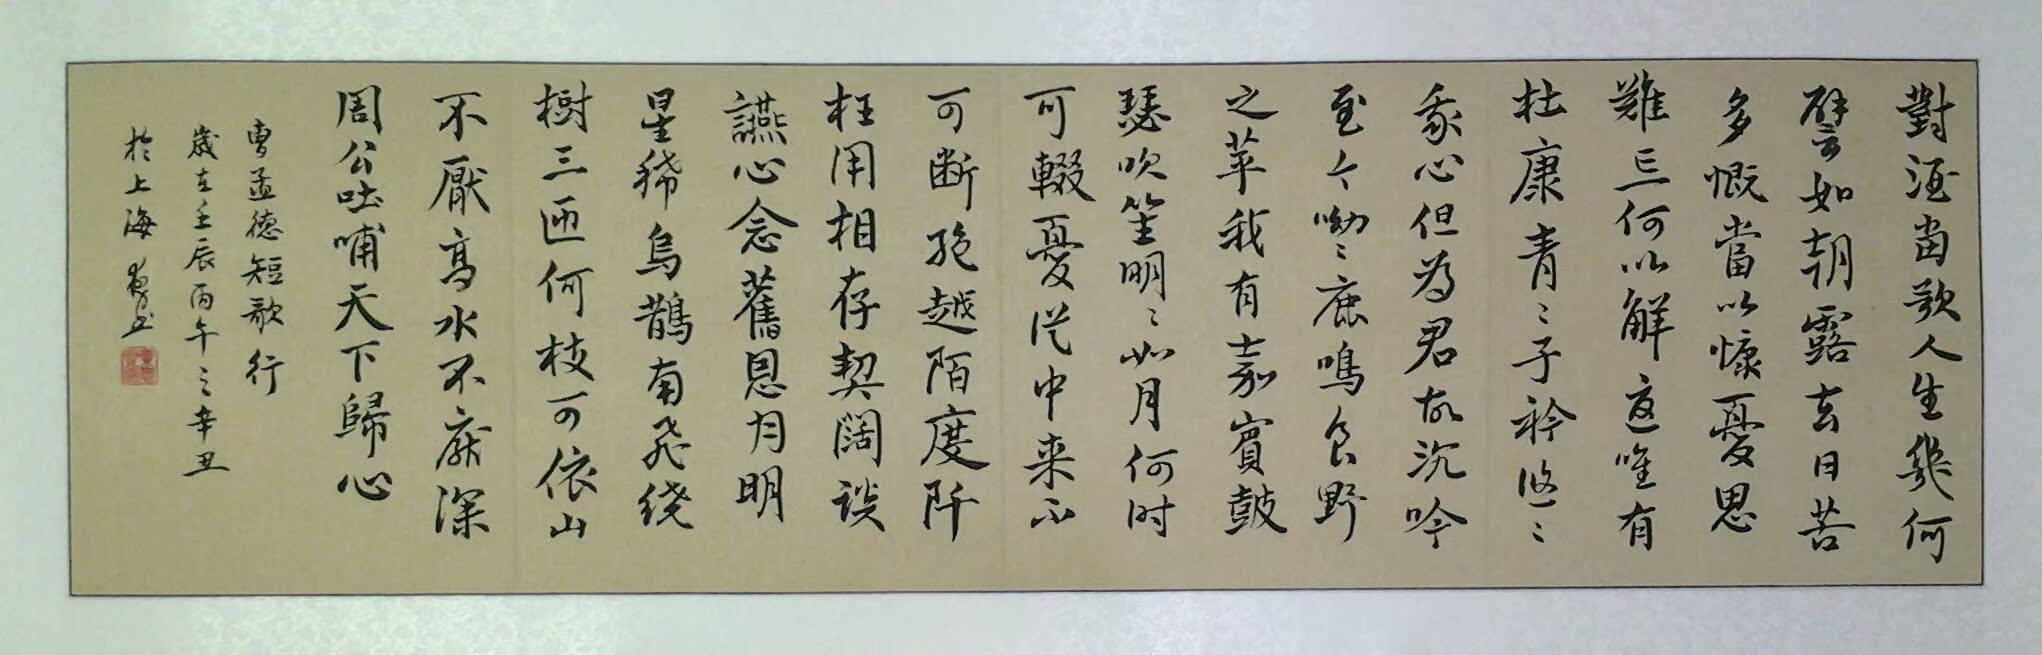 對酒當歌人生幾何
譬如朝露去日苦
多慨當以慷憂思
難忘何以解憂唯有
杜康青〻子衿悠〻
我心但為君故沉吟
至今呦〻鹿鳴食野
之苹我有嘉賓鼓
瑟吹笙明〻如月何时
可輟憂從中来不
可断绝越陌度阡
枉用相存契闊談
讌心念舊恩月明
星稀烏鵲南飛绕
樹三匝何枝可依山
不厭高水不厭深
周公吐哺天下歸心
曹孟德短歌行
歲在壬辰丙午之辛丑
於上海